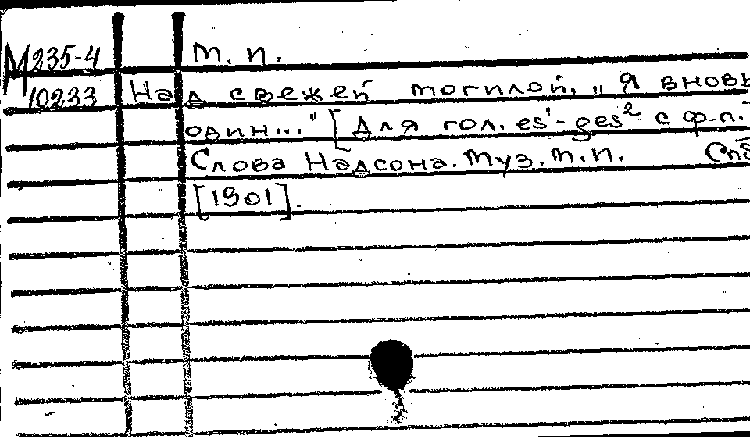 М 235-4 т. п.
10233 Над свежей могилой. „Я вновь
один..." [Для гол. es¹-ges² с ф-п.
Слова Надсона. Муз. т. п. Спб
[1901].